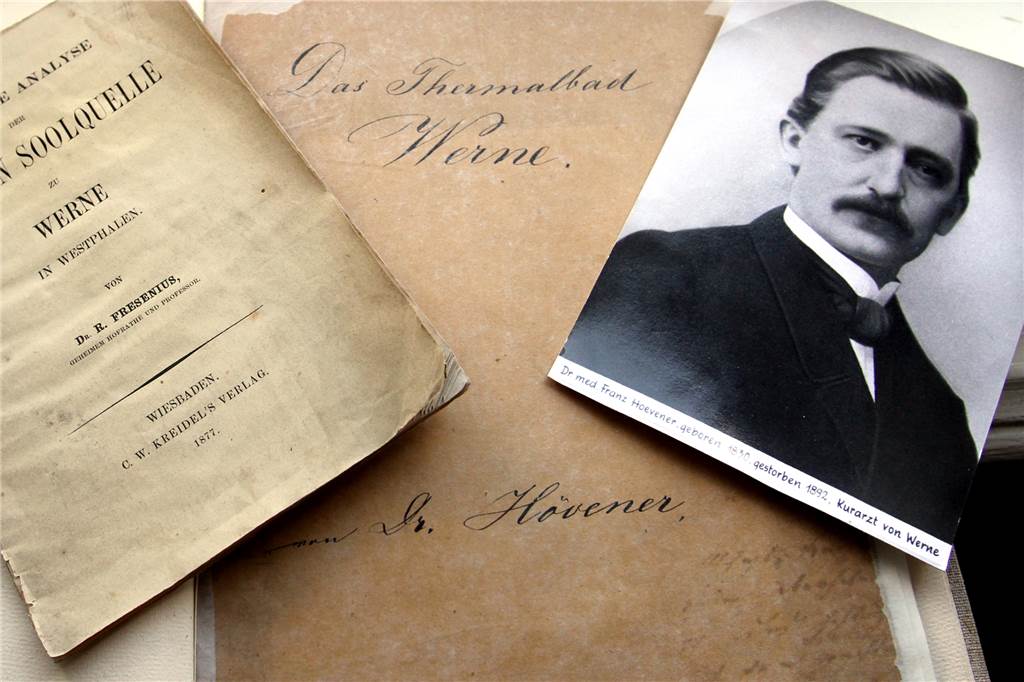 E ANALYSE
DER
N SOOLQUELLE
ZU
WERNE
IN WESTPHALEN.
VON
DR. R. FRESENIUS,
GEHEIMEM HOFRATHE UND PROFESSOR.
WIESBADEN.
C. W. KREIDEL'S VERLAG.
1877.
Das Thermalbad
Werne.
von Dr. Hövener,
Dr med. Franz Hoevener, geboren 1830, gestorben 1892, Kurarzt von Werne